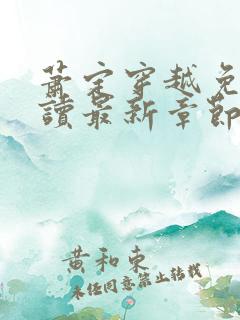 蕭宋穿越免
讀最新章節
黃和東
未经同意禁止转载